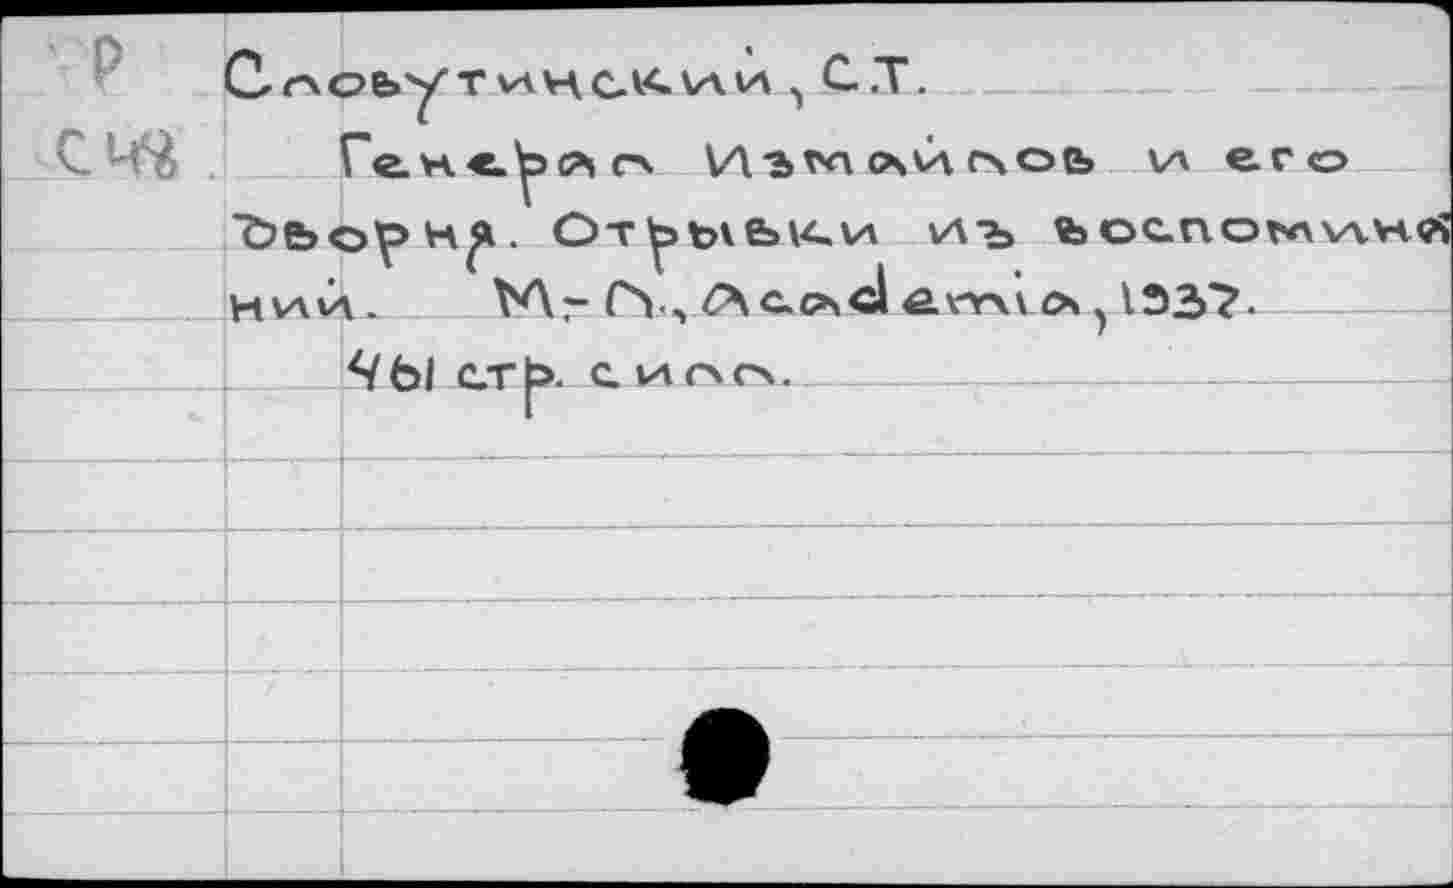 Р Словутинский, С.Т.
С 48. Генерал Измайлов и его
Дворня. Отрывки изъ воспомина
ний. М.-Л., Academia, 1937.
461 стр. с илл.